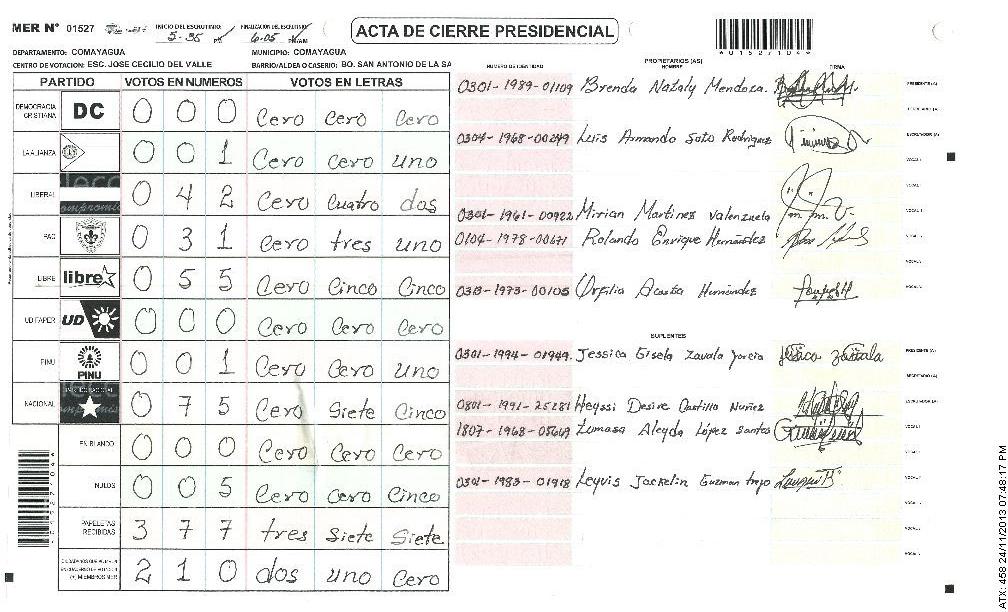 MER Nº 01527 INICIO DEL ESCRUTINIO: 5-35 PM FINALIZACION DEL ESCRUTINIO: 6:05 PM/AM
ACTA DE CIERRE PRESIDENCIAL
DEPARTAMENTO: COMAYAGUA MUNICIPIO: COMAYAGUA
CENTRO DE VOTACION: ESC. JOSE CECILIO DEL VALLE BARRIO/ALDEA O CASERIO: BO. SAN ANTONIO DE LA SA
PARTIDO VOTOS EN NUMEROS VOTOS EN LETRAS
DEMOCRACIA CRISTIANA DC 0 0 0 Cero Cero Cero
LA ALIANZA 0 0 1 Cero Cero uno
LIBERAL 0 4 2 Cero Cuatro dos
PAC 0 3 1 Cero tres uno
LIBRE libre 0 5 5 Cero Cinco Cinco
UD FAPER UD 0 0 0 Cero Cero Cero
PINU PINU 0 0 1 Cero Cero uno
NACIONAL 0 7 5 Cero Siete Cinco
EN BLANCO 0 0 0 Cero Cero Cero
NULOS 0 0 5 Cero Cero Cinco
PAPELETAS RECIBIDAS 3 7 7 tres Siete Siete
(+) MIEMBROS MER 2 1 0 dos uno Cero
NUMERO DE IDENTIDAD PROPIETARIOS (AS) NOMBRE FIRMA
0301-1989-01109 Brenda Nataly Mendoza. PRESIDENTE (A)
SECRETARIO (A)
0304-1968-00249 Luis Armando Soto Rodriguez ESCRUTADOR (A)
VOCAL I
0301-1961-00922 Mirian Martinez Valenzuela
0104-1978-00671 Rolando Enrique Hernández
0313-1973-00105 Orfilia Acosta Hernández
SUPLENTES
0301-1994-01949 Jessica Gisela Zavala Garcia PRESIDENTE (A)
SECRETARIO (A)
0801-1991-25281 Heyssi Desire Castillo Nuñez ESCRUTADOR (A)
1807-1968-05649 Tomasa Aleyda López Santos VOCAL I
0301-1983-01918 Leyvis Jackelin Guzman trejo
ATX: 458 24/11/2013 07:48:17 PM